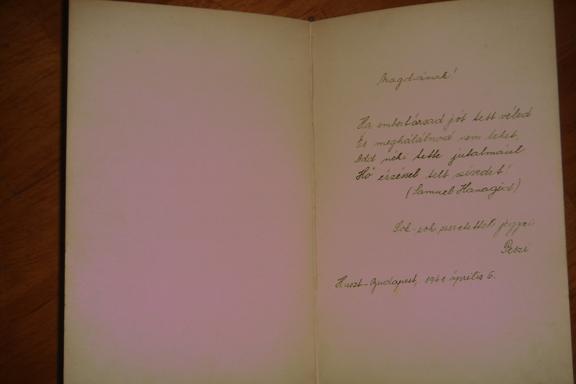 Magdának!
Ha embertársad jót tett véled
És meghálálnod nem lehet,
Add néki tette jutalmául
Hő érzésed telt szívedet!
(Samuel Hanagid)
Sok-sok szeretettel
Huszt-Budapest, április 6.